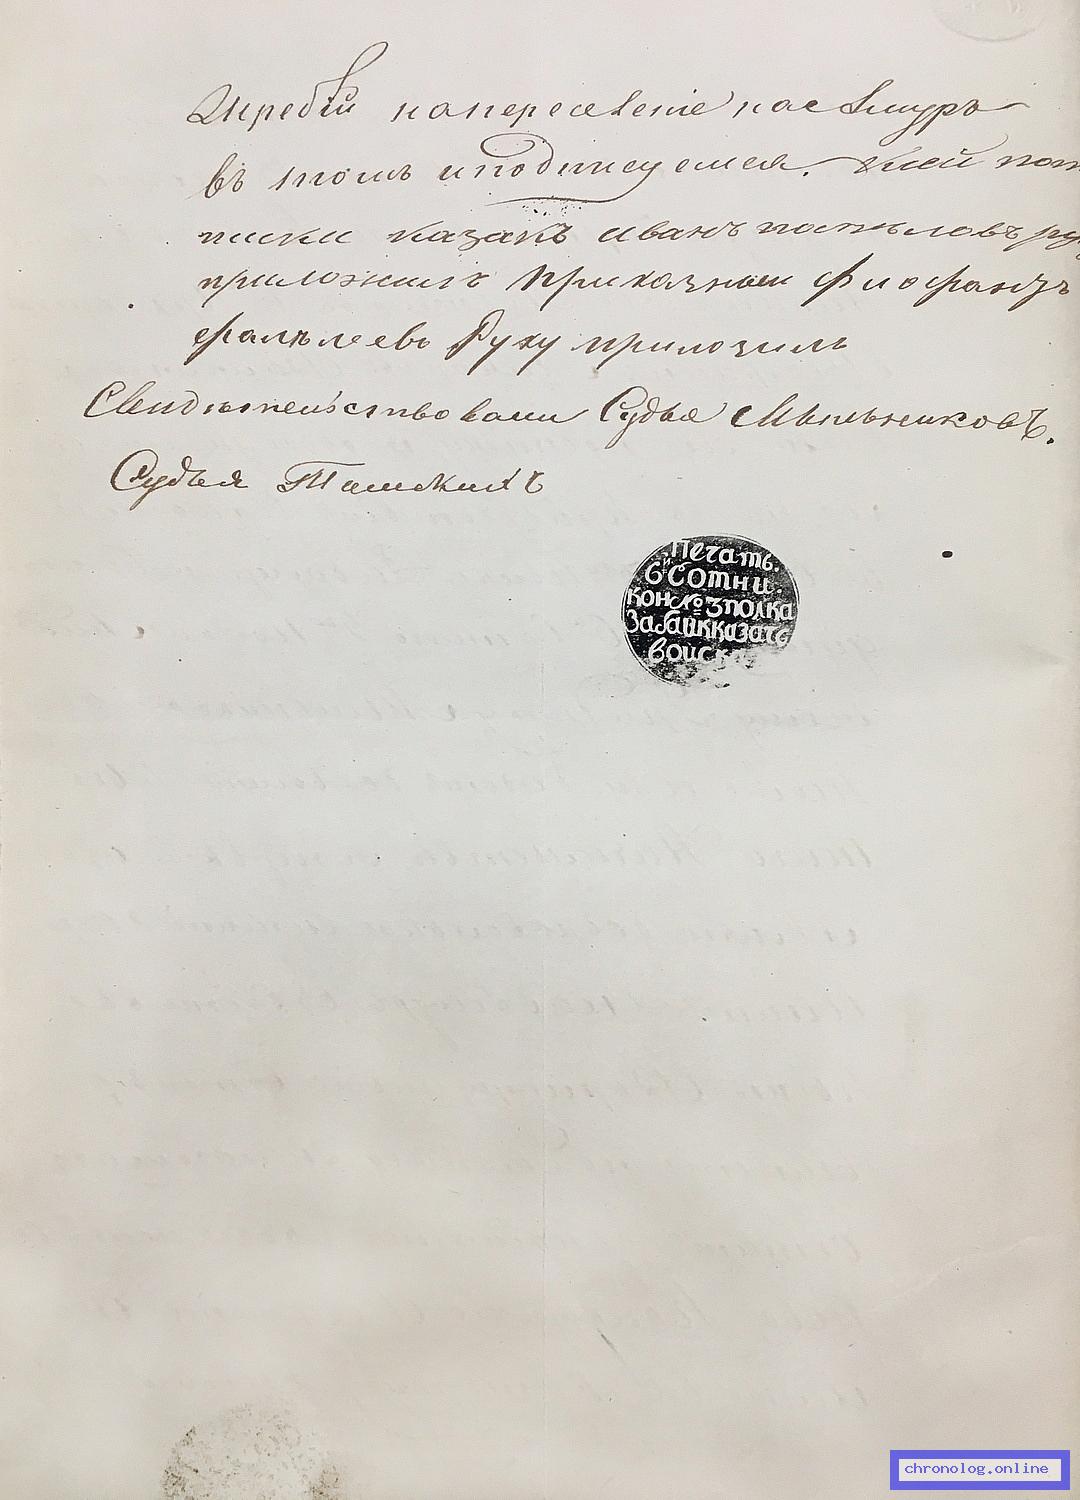 Жребiй напереселенiе нае Амуръ
въ томъ иподписуемся. Ксей пот
писки казакъ иванъ
приложилъ Приказный Фиофанъ
фалѣлеевъ Руку приложилъ
Свидѣтельствовали Судья Мыльниковъ.
Судья
Печать.
6й Сотни.
кон № 3 полка
Забайкказачь
войск
chronolog.online